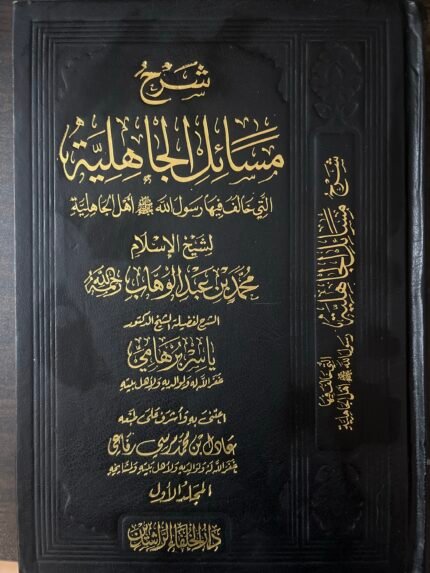 شرح
مسائل الجاهلية
التي خالف فيها رسول الله ﷺ أهل الجاهلية
لشيخ الإسلام
محمد بن عبد الوهاب رحمه الله
الشرح لفضيلة الشيخ الدكتور
ياسر برهامي
غفر الله له ولوالديه ولأهل بيته
اعتنى به وأشرف على طبعه
عادل بن محمد مرسي رفاعي
غفر الله له ولوالديه ولأهل بيته ولمشايخه
المجلد الأول
دار الخلفاء الراشدين
شرح مسائل الجاهلية
التي خالف فيها
رسول الله ﷺ أهل الجاهلية